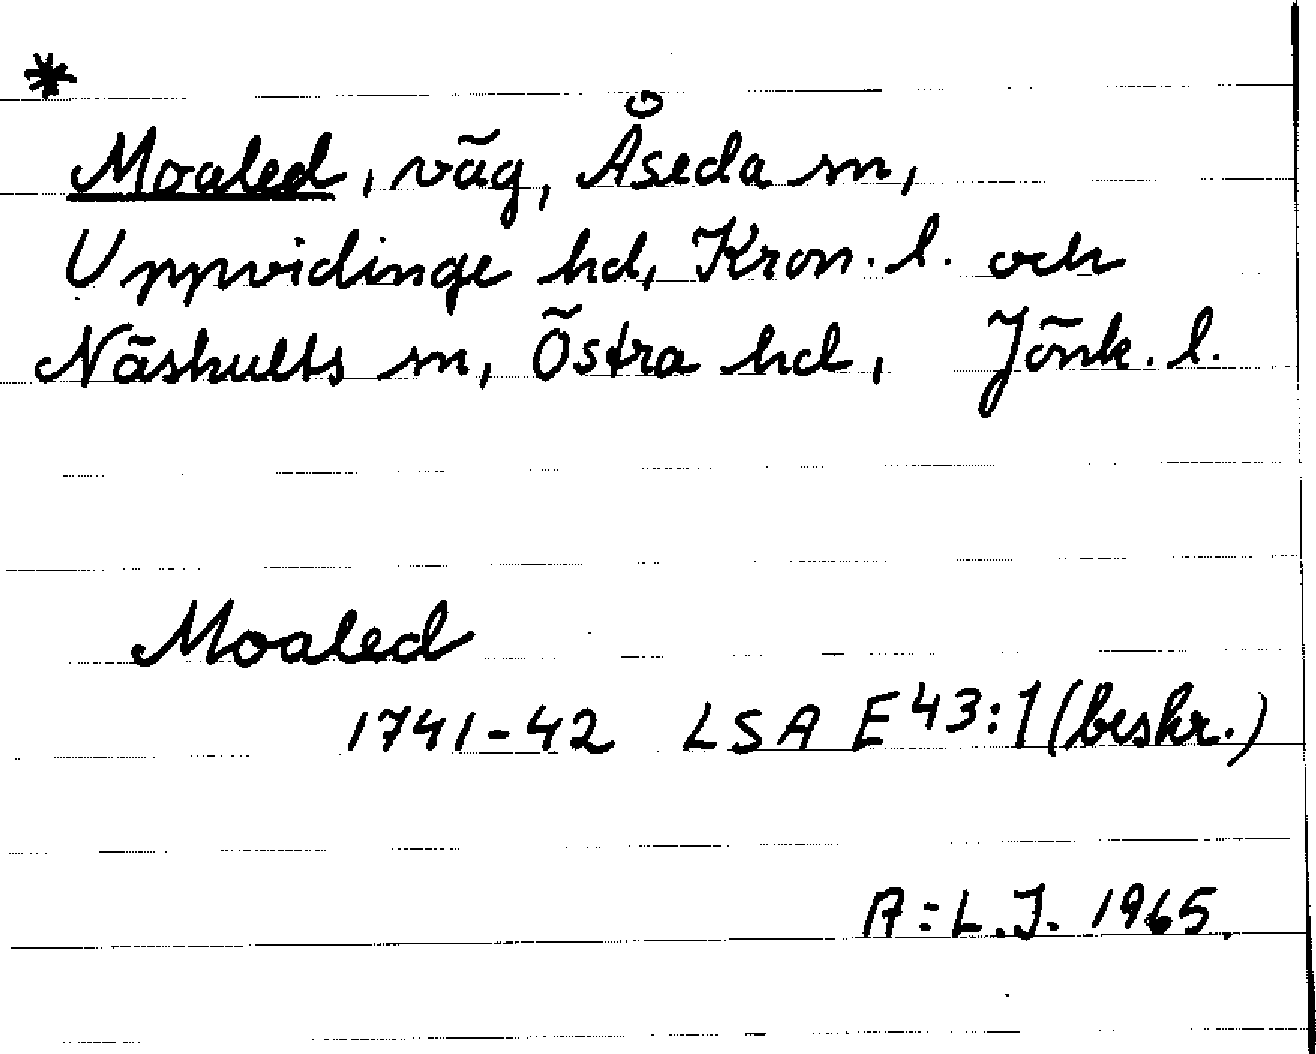 *
Moaled, väg, Åseda sn,
Uppvidinge hd, Kron. l. och
Näshults sn, Östra hd, Jönk. l.
Moaled
1741-42 LSA E 43:1 (beskr.)
A:L.J. 1965.